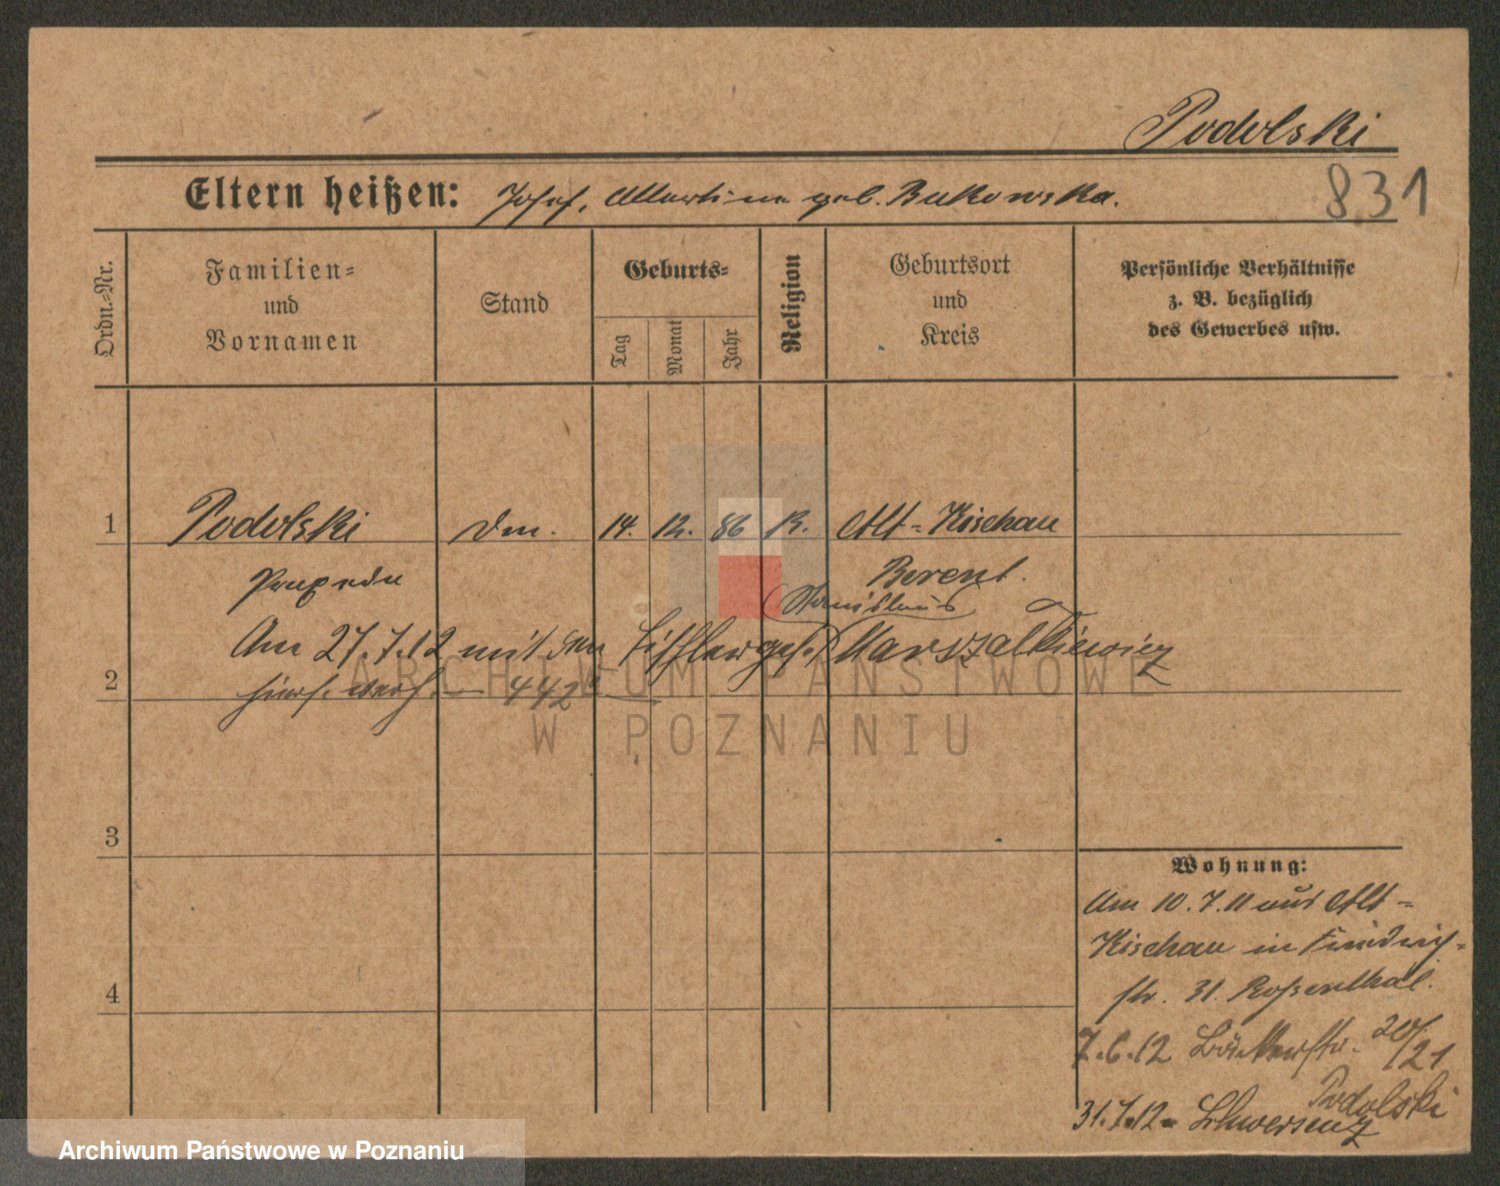 Podolski
Eltern heißen: Josef, Martina geb. Bukowska.
831
Ordn.=Nr.
Familien=
und
Vornamen
Stand
Geburts=
Tag
Monat
Jahr
Religion
Geburtsort
und
Kreis
Persönliche Verhältnisse
z. B. bezüglich
des Gewerbes usw.
1 Podolski 14. 12. 86 K. Alt-Kischau
Berent.
Stanislaus
Am 27.7.12 mit dem Tischlerges. Marszalkiewicz
2 hier verh. 442
ARCHIWUM PAŃSTWOWE
W POZNANIU
3
4
Wohnung:
Am 10.7.11 aus Alt=
Kischau in Friedrich=
str. 31.
7.6.12 Bäckerstr. 20/21
Podolski
31.7.12. Schwersenz
Archiwum Państwowe w Poznaniu